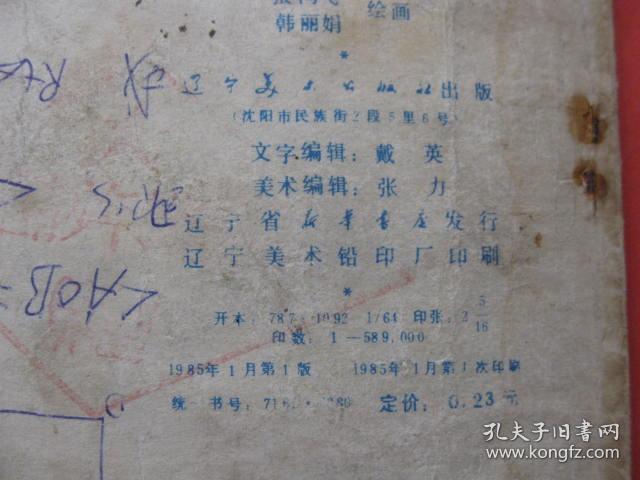 绘画
韩丽娟
*
辽宁美术出版社出版
(沈阳市民族街2段5里6号)
文字编辑：戴英
美术编辑：张力
辽宁省新华书店发行
辽宁美术铅印厂印刷
*
开本：787×1092 1/64 印张：2 5/16
印数：1—589,000
1985年1月第1版 1985年1月第1次印刷
统一书号：
定价：0.23元
<AOB=
孔夫子旧书网
www.kongfz.com